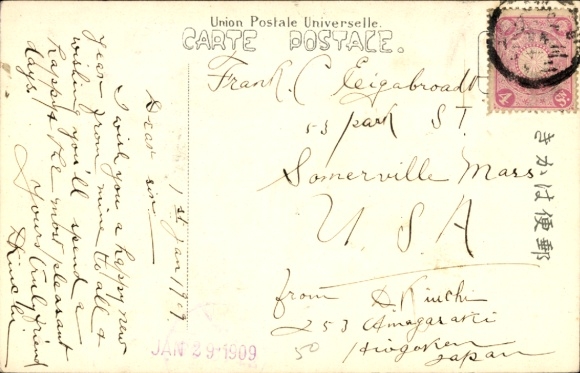 Union Postale Universelle.
CARTE POSTALE.
4
Frank. C Eigabroadt
53 park ST.
Somerville Mass
U.S.A
from A Kinchi
253 Amagasaki
50 Hiogoken
Japan
きかは便郵
1st Jan 1909
Dear sir.
I wish you a happy new
year from mine to all &
wishing you'll spend a
happy & the most pleasant
days.
yours truly friend
A Kinchi
JAN 29 1909